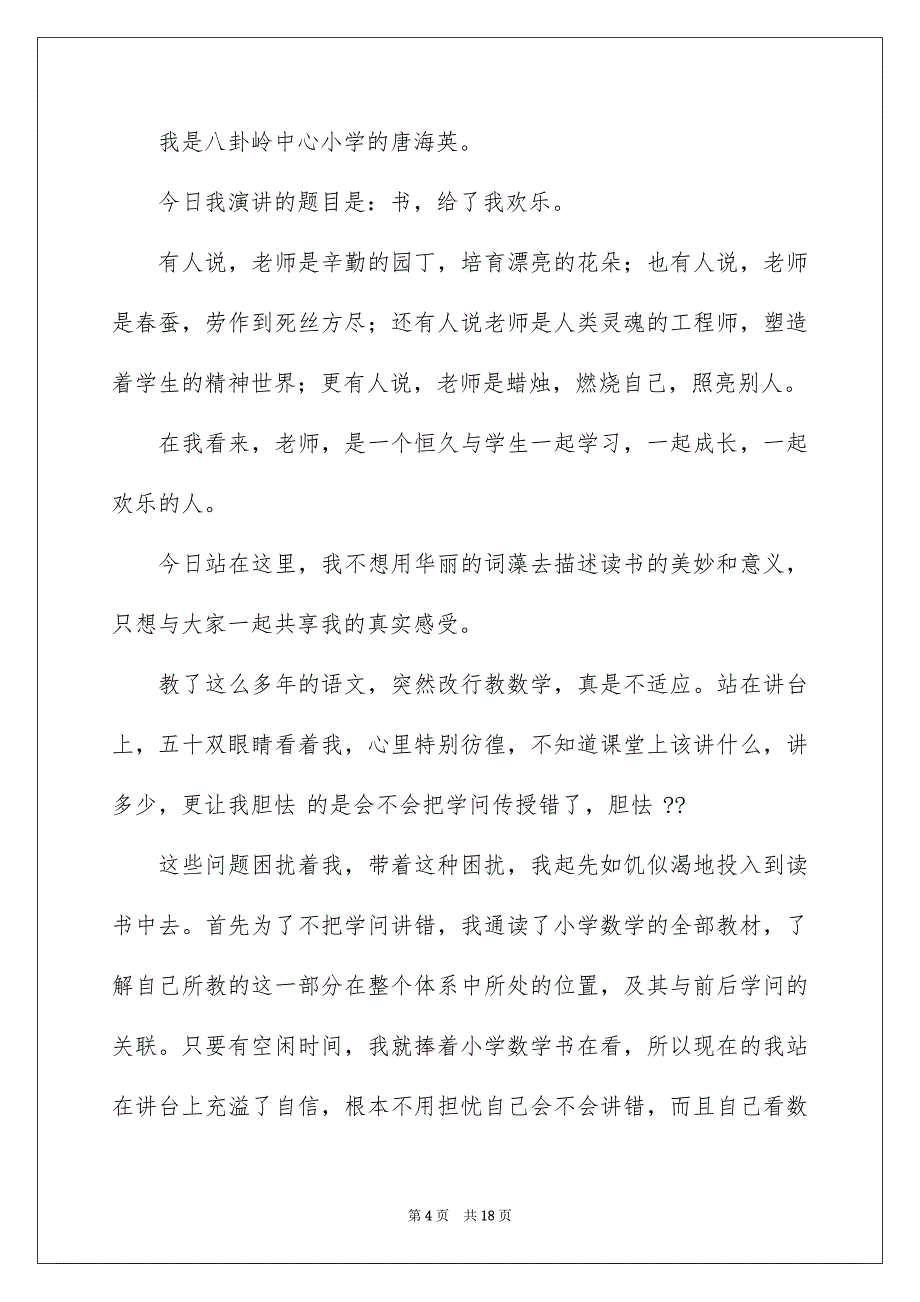 我是八卦岭中心小学的唐海英。
今日我演讲的题目是：书，给了我欢乐。
有人说，老师是辛勤的园丁，培育漂亮的花朵；也有人说，老师
是春蚕，劳作到死丝方尽；还有人说老师是人类灵魂的工程师，塑造
着学生的精神世界；更有人说，老师是蜡烛，燃烧自己，照亮别人。
在我看来，老师，是一个恒久与学生一起学习，一起成长，一起
欢乐的人。
今日站在这里，我不想用华丽的词藻去描述读书的美妙和意义，
只想与大家一起共享我的真实感受。
教了这么多年的语文，突然改行教数学，真是不适应。站在讲台
上，五十双眼睛看着我，心里特别彷徨，不知道课堂上该讲什么，讲
多少，更让我胆怯 的是会不会把学问传授错了，胆怯 ??
这些问题困扰着我，带着这种困扰，我起先如饥似渴地投入到读
书中去。首先为了不把学问讲错，我通读了小学数学的全部教材，了
解自己所教的这一部分在整个体系中所处的位置，及其与前后学问的
关联。只要有空闲时间，我就捧着小学数学书在看，所以现在的我站
在讲台上充溢了自信，根本不用担忧自己会不会讲错，而且自己看数
第 4 页 共 18 页